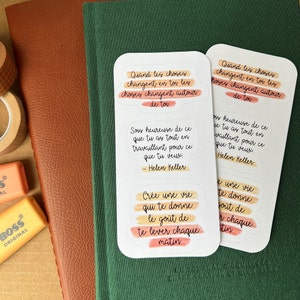 Quand tes choses
changent en toi les
choses changent autour
de toi
Sois heureuse de ce
que tu as tout en
travaillant pour ce
que tu veux
- Helen Keller
Crée une vie
qui te donne
le goût de
te lever chaque
matin
Quand tes choses
changent en toi les
choses changent autour
de toi
Sois heureuse de ce
que tu as tout en
travaillant pour ce
que tu veux
- Helen Keller
Crée une vie
qui te donne
le goût de
lever chaque
matin
BOSS
ORIGINAL
BOSS
ORIGINAL